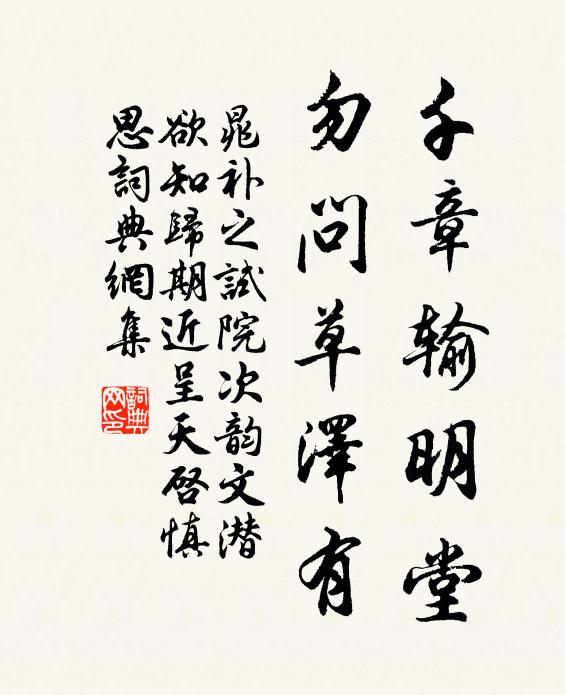 千章输明堂
勿問草澤有
晁补之試院次韵文潜
欲知歸期近呈天启慎
思詞典網集
詞典网印